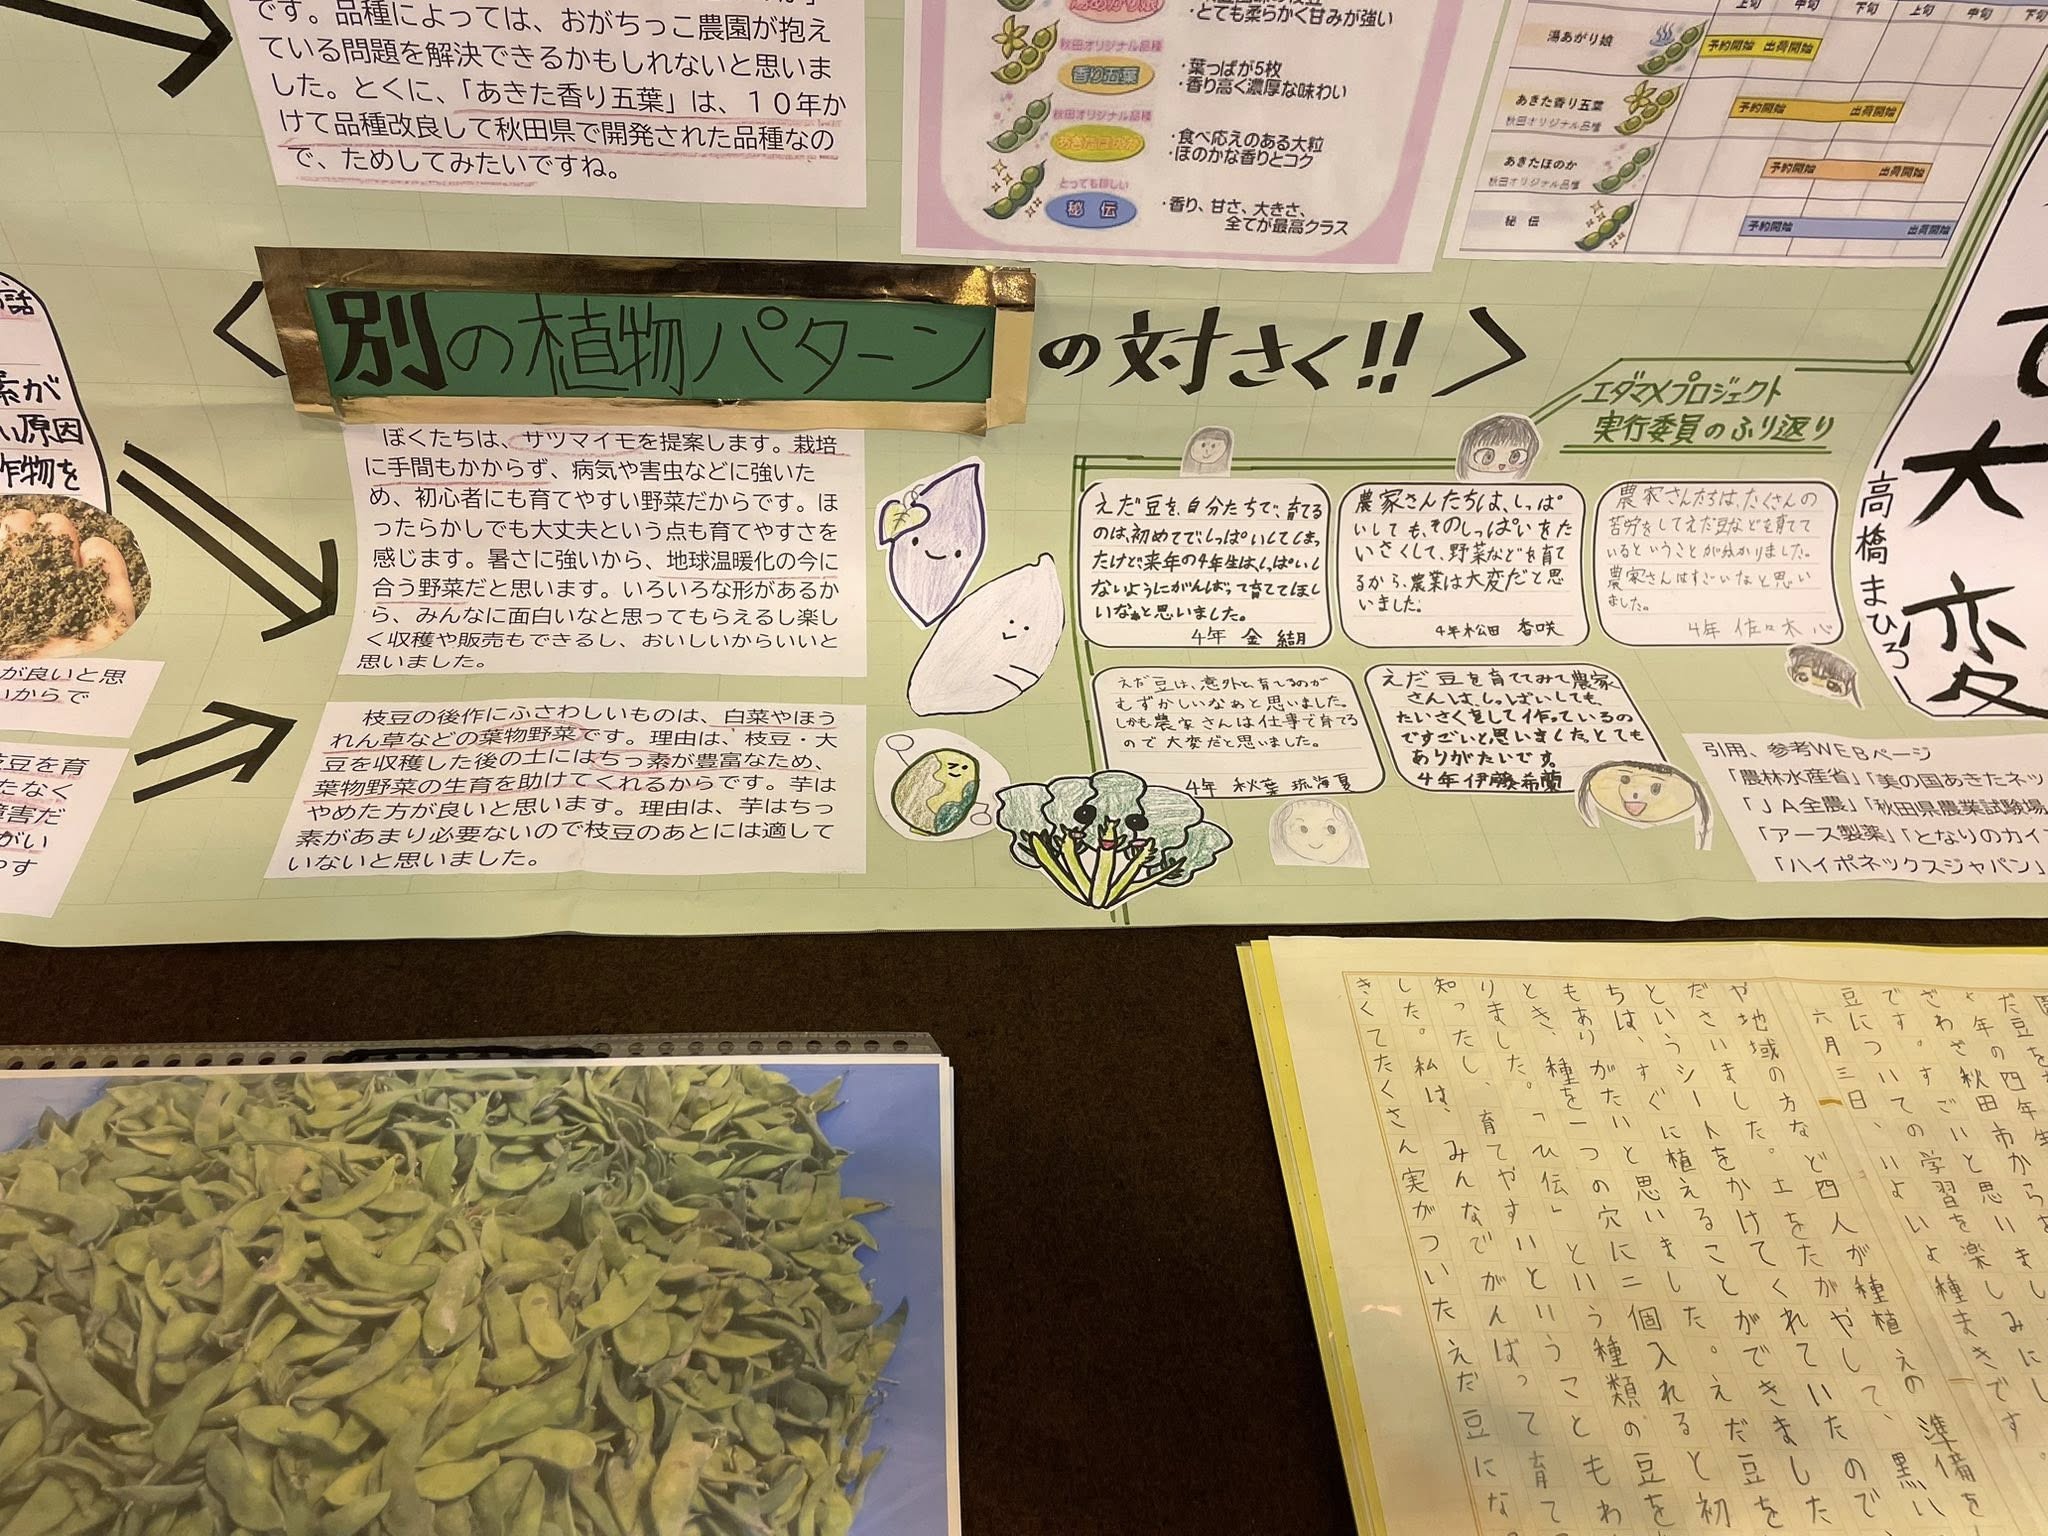 です。品種によっては、おがちっこ農園が抱え
ている問題を解決できるかもしれないと思いま
した。とくに、「あきた香り五葉」は、１０年か
けて品種改良して秋田県で開発された品種なの
で、ためしてみたいですね。
湯あがり娘
・とても柔らかく甘みが強い
秋田オリジナル品種
香り五葉
・葉っぱが5枚
・香り高く濃厚な味わい
秋田オリジナル品種
あきたほのか
・食べ応えのある大粒
・ほのかな香りとコク
とっても珍しい
秘伝
・香り、甘さ、大きさ、
全てが最高クラス
上旬 中旬 下旬 上旬 中旬 下旬
湯あがり娘 予約開始 出荷開始
あきた香り五葉 予約開始 出荷開始
秋田オリジナル品種
あきたほのか 予約開始 出荷開始
秋田オリジナル品種
秘伝 予約開始 出荷開始
<別の植物パターンの対さく!!>
ぼくたちは、サツマイモを提案します。栽培
に手間もかからず、病気や害虫などに強いた
め、初心者にも育てやすい野菜だからです。ほ
ったらかしでも大丈夫という点も育てやすさを
感じます。暑さに強いから、地球温暖化の今に
合う野菜だと思います。いろいろな形があるか
ら、みんなに面白いなと思ってもらえるし楽し
く収穫や販売もできるし、おいしいからいいと
思いました。
枝豆の後作にふさわしいものは、白菜やほう
れん草などの葉物野菜です。理由は、枝豆・大
豆を収穫した後の土にはちっ素が豊富なため、
葉物野菜の生育を助けてくれるからです。芋は
やめた方が良いと思います。理由は、芋はちっ
素があまり必要ないので枝豆のあとには適して
いないと思いました。
話
素が
い原因
作物を
が良いと思
いからで
枝豆を育
たなく
障害だ
がい
やす
エダマメプロジェクト
実行委員のふり返り
えだ豆を自分たちで、育てる
のは、初めてで、しっぱいしてしまっ
たけど来年の4年生は、しっぱいし
ないようにがんばって育ててほし
いなぁと思いました。
4年 金 結月
農家さんたちは、しっぱ
いしても、そのしっぱいをた
いさくして、野菜などを育て
るから、農業は大変だと思
いました。
4年 松田 香咲
農家さんたちは、たくさんの
苦労をしてえだ豆などを育てて
いるということが分かりました。
農家さんはすごいなと思い
ました。
4年 佐々木 心
えだ豆は、意外と育てるのが
むずかしいなぁと思いました。
しかも農家さんは仕事で育てる
ので大変だと思いました。
4年 秋葉 琉海夏
えだ豆を育ててみて農家
さんは、しっぱいしても、
たいさくをして作っているの
ですごいと思いました。とても
ありがたいです。
4年 伊藤希蘭
大変
高橋まひろ
引用、参考ＷＥＢページ
「農林水産省」「美の国あきたネッ
「ＪＡ全農」「秋田県農業試験場
「アース製薬」「となりのカイ
「ハイポネックスジャパン」
だ豆を
々年の四年生
ざわざ秋田市から
です。すごいと思いまし
豆についての学習を楽しみにし
六月三日、いよいよ種まきです。
や地域の方など四人が種植えの準備を
ださいました。土をたがやして、黒い
というシートをかけてくれていたので
ちは、すぐに植えることができました
もありがたいと思いました。えだ豆を
とき、種を一つの穴に二個入れると初
りました。「ひ伝」という種類の豆を
知ったし、育てやすいということもわ
した。私は、みんなでがんばって育て
きくてたくさん実がついたえだ豆にな